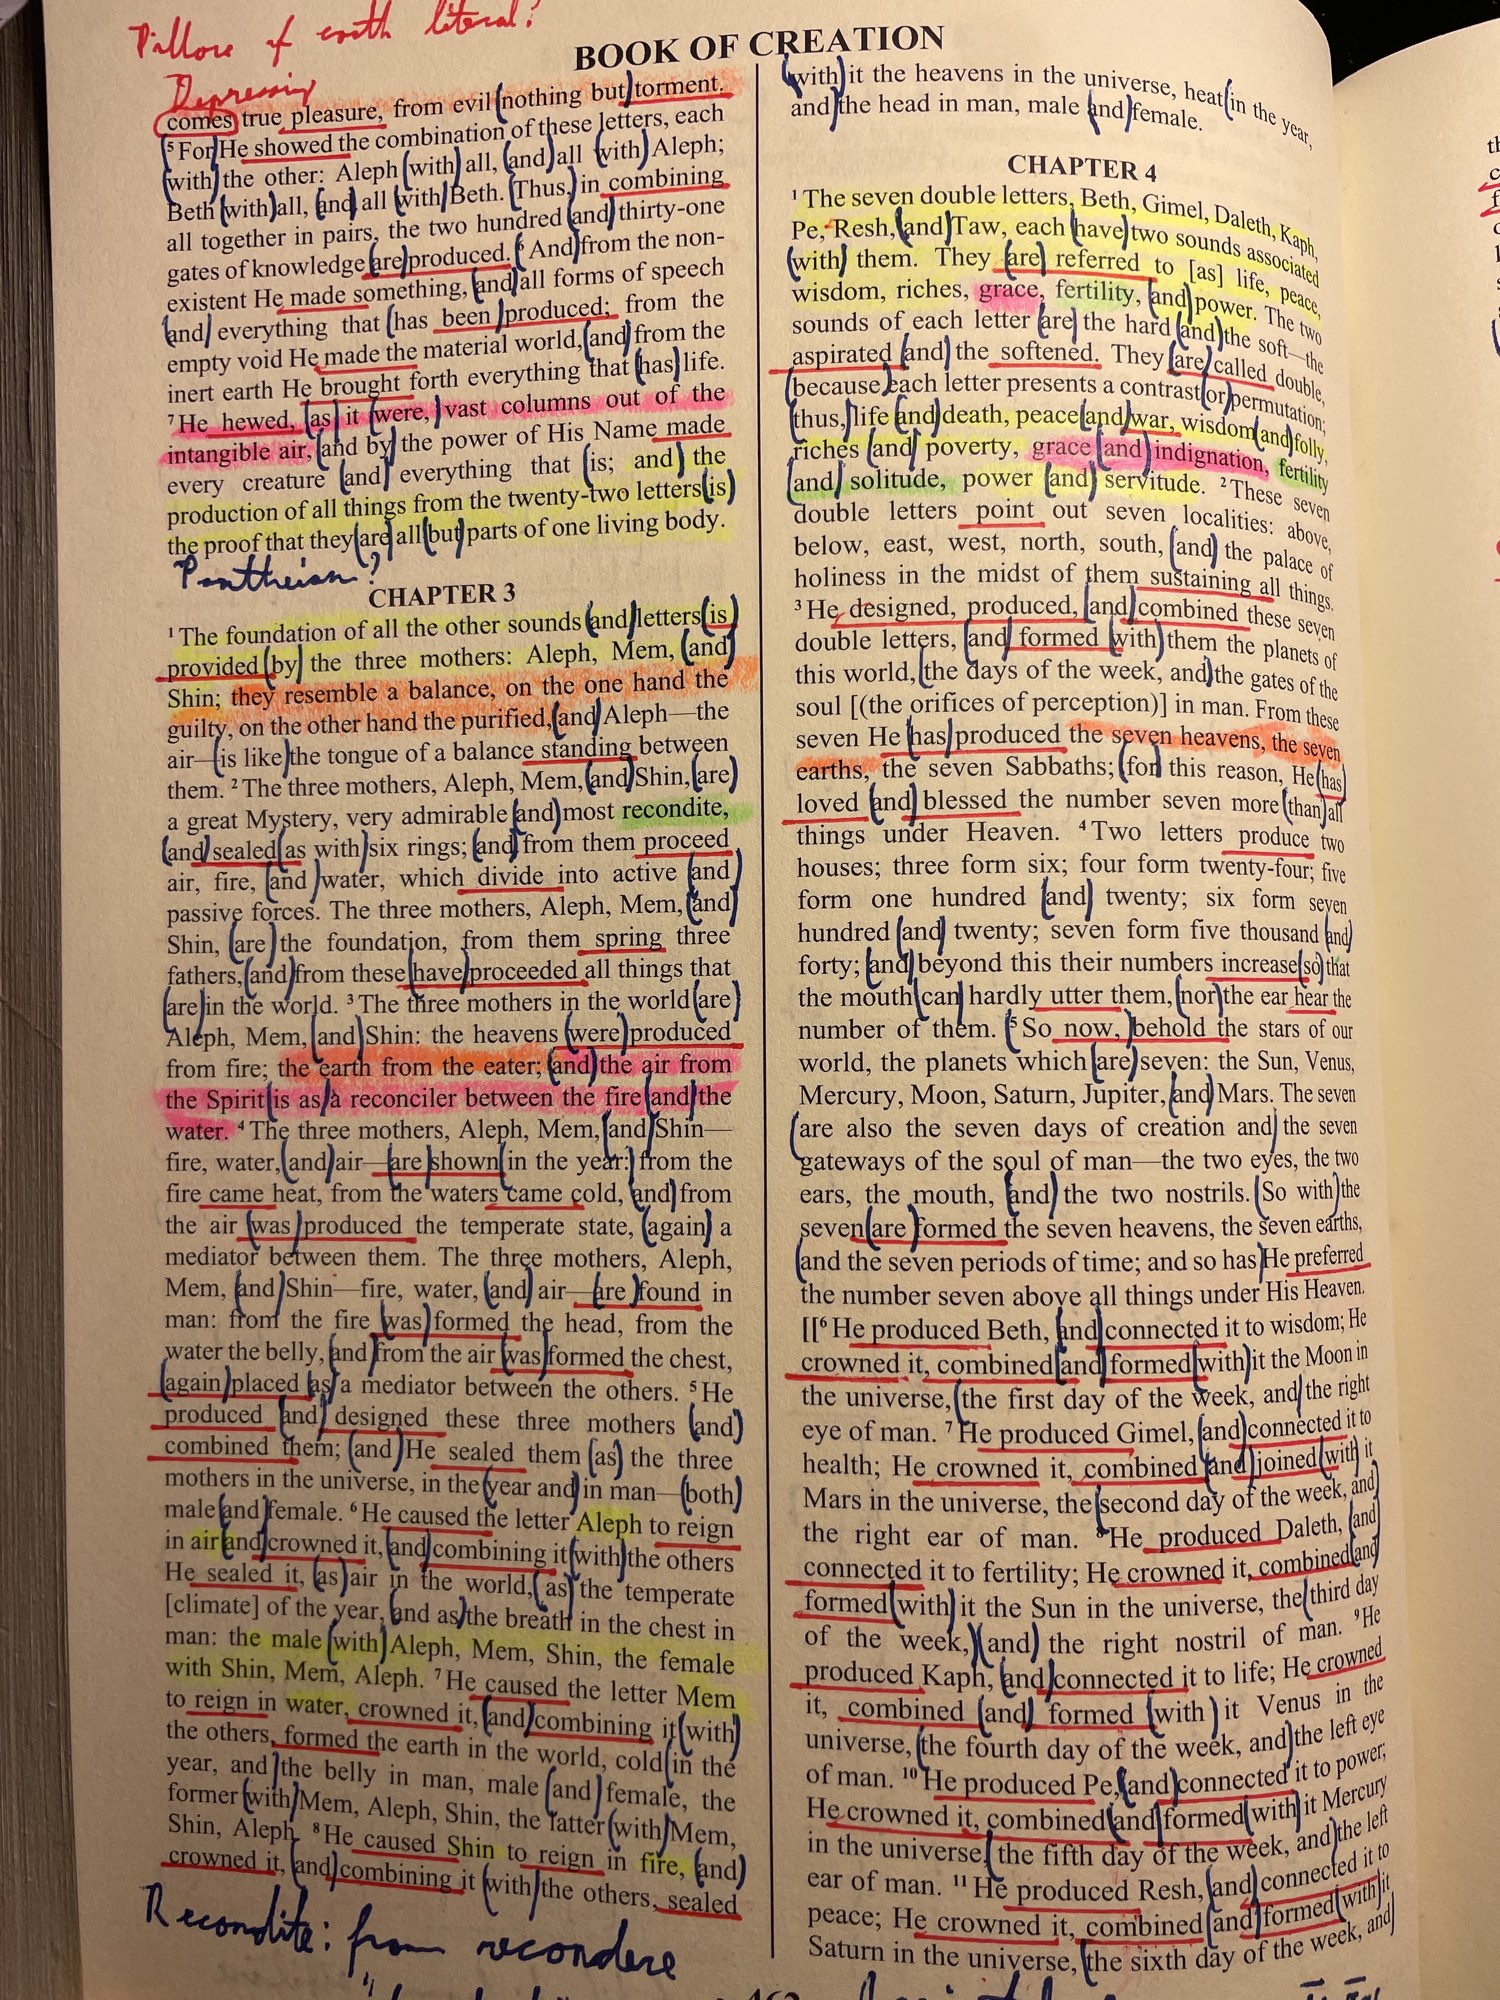 Pillars of earth literal?
BOOK OF CREATION
Depressing
comes true pleasure, from evil nothing but torment.
⁵ For He showed the combination of these letters, each
with the other: Aleph with all, and all with Aleph;
Beth with all, and all with Beth. Thus, in combining
all together in pairs, the two hundred and thirty-one
gates of knowledge are produced. ⁶ And from the non-
existent He made something, and all forms of speech
and everything that has been produced; from the
empty void He made the material world, and from the
inert earth He brought forth everything that has life.
⁷ He hewed, as it were, vast columns out of the
intangible air, and by the power of His Name made
every creature and everything that is; and the
production of all things from the twenty-two letters is
the proof that they are all but parts of one living body.
Pantheism?
CHAPTER 3
¹ The foundation of all the other sounds and letters is
provided by the three mothers: Aleph, Mem, and
Shin; they resemble a balance, on the one hand the
guilty, on the other hand the purified, and Aleph—the
air—is like the tongue of a balance standing between
them. ² The three mothers, Aleph, Mem, and Shin, are
a great Mystery, very admirable and most recondite,
and sealed as with six rings; and from them proceed
air, fire, and water, which divide into active and
passive forces. The three mothers, Aleph, Mem, and
Shin, are the foundation, from them spring three
fathers, and from these have proceeded all things that
are in the world. ³ The three mothers in the world are
Aleph, Mem, and Shin: the heavens were produced
from fire; the earth from the eater; and the air from
the Spirit is as a reconciler between the fire and the
water. ⁴ The three mothers, Aleph, Mem, and Shin—
fire, water, and air—are shown in the year: from the
fire came heat, from the waters came cold, and from
the air was produced the temperate state, again a
mediator between them. The three mothers, Aleph,
Mem, and Shin—fire, water, and air—are found in
man: from the fire was formed the head, from the
water the belly, and from the air was formed the chest,
again placed as a mediator between the others. ⁵ He
produced and designed these three mothers and
combined them; and He sealed them as the three
mothers in the universe, in the year and in man—both
male and female. ⁶ He caused the letter Aleph to reign
in air and crowned it, and combining it with the others
He sealed it, as air in the world, as the temperate
[climate] of the year, and as the breath in the chest in
man: the male with Aleph, Mem, Shin, the female
with Shin, Mem, Aleph. ⁷ He caused the letter Mem
to reign in water, crowned it, and combining it with
the others, formed the earth in the world, cold in the
year, and the belly in man, male and female, the
former with Mem, Aleph, Shin, the latter with Mem,
Shin, Aleph. ⁸ He caused Shin to reign in fire, and
crowned it, and combining it with the others, sealed
Recondite: from recondere
with it the heavens in the universe, heat in the year,
and the head in man, male and female.
CHAPTER 4
¹ The seven double letters, Beth, Gimel, Daleth, Kaph,
Pe, Resh, and Taw, each have two sounds associated
with them. They are referred to [as] life, peace,
wisdom, riches, grace, fertility, and power. The two
sounds of each letter are the hard and the soft—the
aspirated and the softened. They are called double,
because each letter presents a contrast or permutation;
thus, life and death, peace and war, wisdom and folly,
riches and poverty, grace and indignation, fertility
and solitude, power and servitude. ² These seven
double letters point out seven localities: above,
below, east, west, north, south, and the palace of
holiness in the midst of them sustaining all things.
³ He designed, produced, and combined these seven
double letters, and formed with them the planets of
this world, the days of the week, and the gates of the
soul [(the orifices of perception)] in man. From these
seven He has produced the seven heavens, the seven
earths, the seven Sabbaths; for this reason, He has
loved and blessed the number seven more than all
things under Heaven. ⁴ Two letters produce two
houses; three form six; four form twenty-four; five
form one hundred and twenty; six form seven
hundred and twenty; seven form five thousand and
forty; and beyond this their numbers increase so that
the mouth can hardly utter them, nor the ear hear the
number of them. ⁵ So now, behold the stars of our
world, the planets which are seven: the Sun, Venus,
Mercury, Moon, Saturn, Jupiter, and Mars. The seven
are also the seven days of creation and the seven
gateways of the soul of man—the two eyes, the two
ears, the mouth, and the two nostrils. So with the
seven are formed the seven heavens, the seven earths,
and the seven periods of time; and so has He preferred
the number seven above all things under His Heaven.
[[⁶ He produced Beth, and connected it to wisdom; He
crowned it, combined and formed with it the Moon in
the universe, the first day of the week, and the right
eye of man. ⁷ He produced Gimel, and connected it to
health; He crowned it, combined and joined with it
Mars in the universe, the second day of the week, and
the right ear of man. ⁸ He produced Daleth, and
connected it to fertility; He crowned it, combined and
formed with it the Sun in the universe, the third day
of the week, and the right nostril of man. ⁹ He
produced Kaph, and connected it to life; He crowned
it, combined and formed with it Venus in the
universe, the fourth day of the week, and the left eye
of man. ¹⁰ He produced Pe, and connected it to power;
He crowned it, combined and formed with it Mercury
in the universe, the fifth day of the week, and the left
ear of man. ¹¹ He produced Resh, and connected it to
peace; He crowned it, combined and formed with it
Saturn in the universe, the sixth day of the week, and